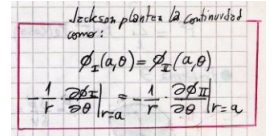 Jackson plantea la continuidad
como:
ϕ_I(a,θ) = ϕ_I(a,θ)
-1/r · ∂ϕ_I/∂θ |r=a = -1/r · ∂ϕ_II/∂θ |r=a